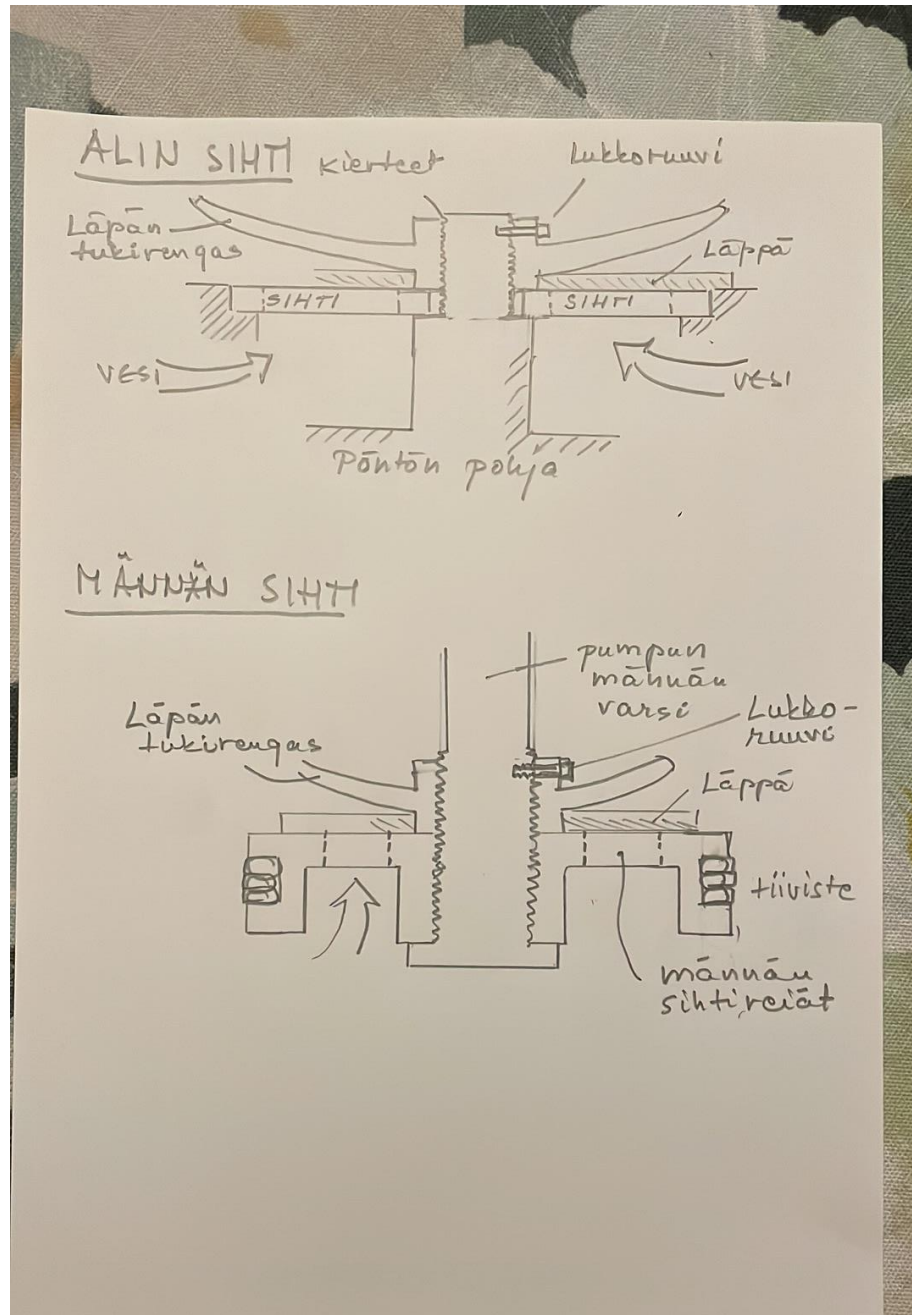 ALIN SIHTI
Kierteet
Lukkoruuvi
Läpän
tukirengas
Läppä
SIHTI
SIHTI
VESI
VESI
Pöntön pohja
MÄNNÄN SIHTI
pumpun
männän
varsi
Läpän
tukirengas
Lukko-
ruuvi
Läppä
tiiviste
männän
sihtireiät